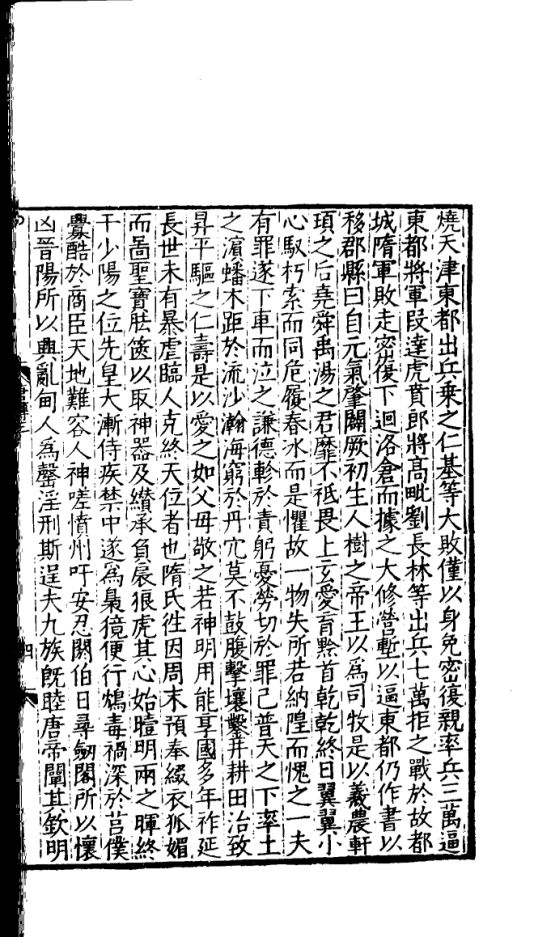 燒天津東都出兵乘之仁基等大敗僅以身免密復親率兵三萬逼
東都將軍段達虎賁郎將高毗劉長林等出兵七萬拒之戰於故都
城隋軍敗走密復下迴洛倉而據之大修營塹以逼東都仍作書以
移郡縣曰自元氣肇闢厥初生人樹之帝王以為司牧是以羲農軒
頊之后堯舜禹湯之君靡不祗畏上玄愛育黔首乾乾終日翼翼小
心馭朽索而同危履春冰而是懼故一物失所若納隍而愧之一夫
有罪遂下車而泣之謙德軫於責躬憂勞切於罪己普天之下率土
之濵蟠木距於流沙瀚海窮於丹穴莫不鼓腹擊壤鑿井耕田治致
昇平驅之仁壽是以愛之如父母敬之若神明用能享國多年祚延
長世未有暴虐臨人克終天位者也隋氏徃因周末預奉綴衣狐媚
而啚聖寶胠篋以取神器及纉承負扆狼虎其心始曀明兩之暉終
干少陽之位先皇大漸侍疾禁中遂為梟獍便行鴆毒禍深於莒僕
釁酷於商臣天地難容人神嗟憤州吁安忍閼伯日尋劒閣所以懷
凶晉陽所以興亂甸人為罄淫刑斯逞夫九族旣睦唐帝闡其欽明
四